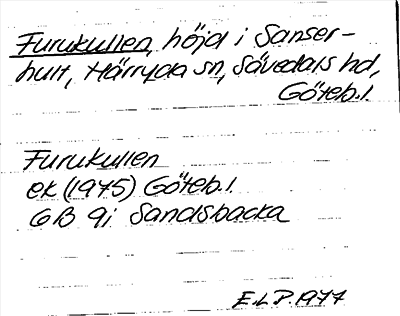 Furukullen, höjd i Sanser-
hult, Härryda sn, Sävedals hd,
Göteb. l.
Furukullen
ek (1975) Göteb. l.
6B 9i Sandsbacka
E.L.P. 1977